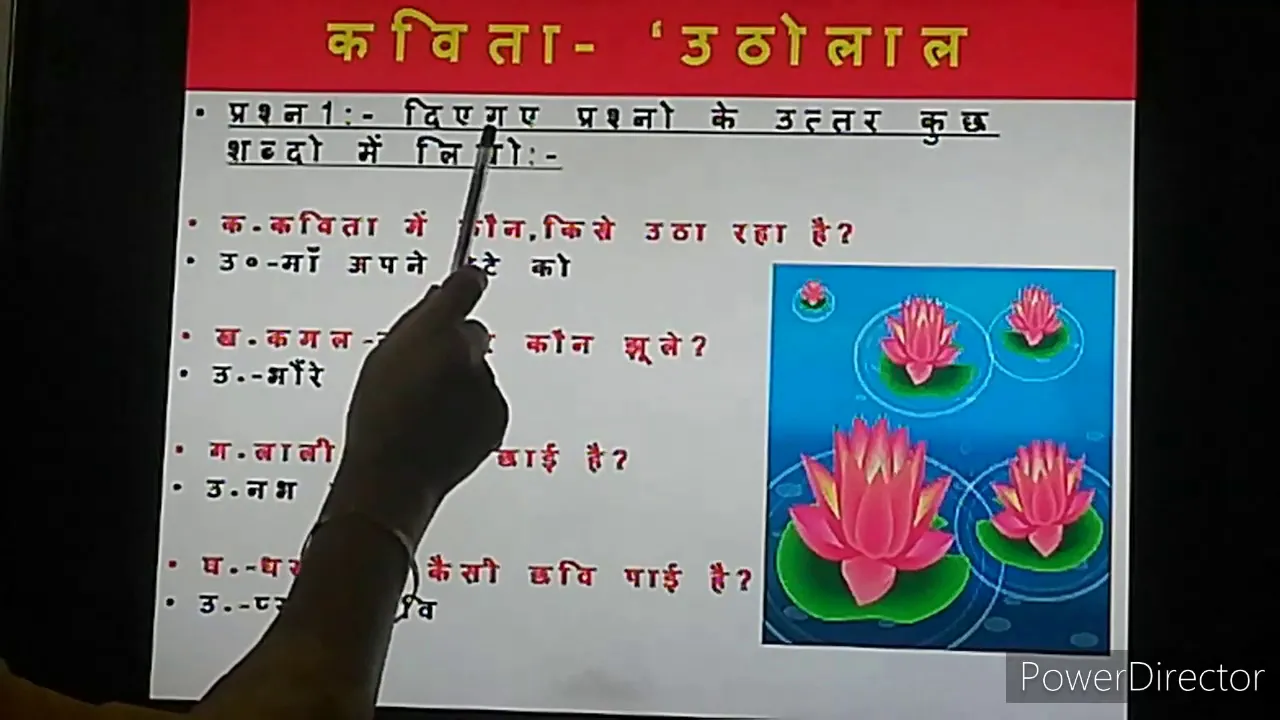 कविता- ‘उठोलाल
• प्रश्न1:- दिएगए प्रश्नो के उत्तर कुछ
शब्दो में
• क.-कविता में किसे उठा रहा है?
• उ०-माँ अपने को
• ख.कमल कौन झूले?
• उ.-भौंरे
• ग.लाली छाई है?
• उ.नभ
• घ. कैसी छवि पाई है?
• उ.
PowerDirector